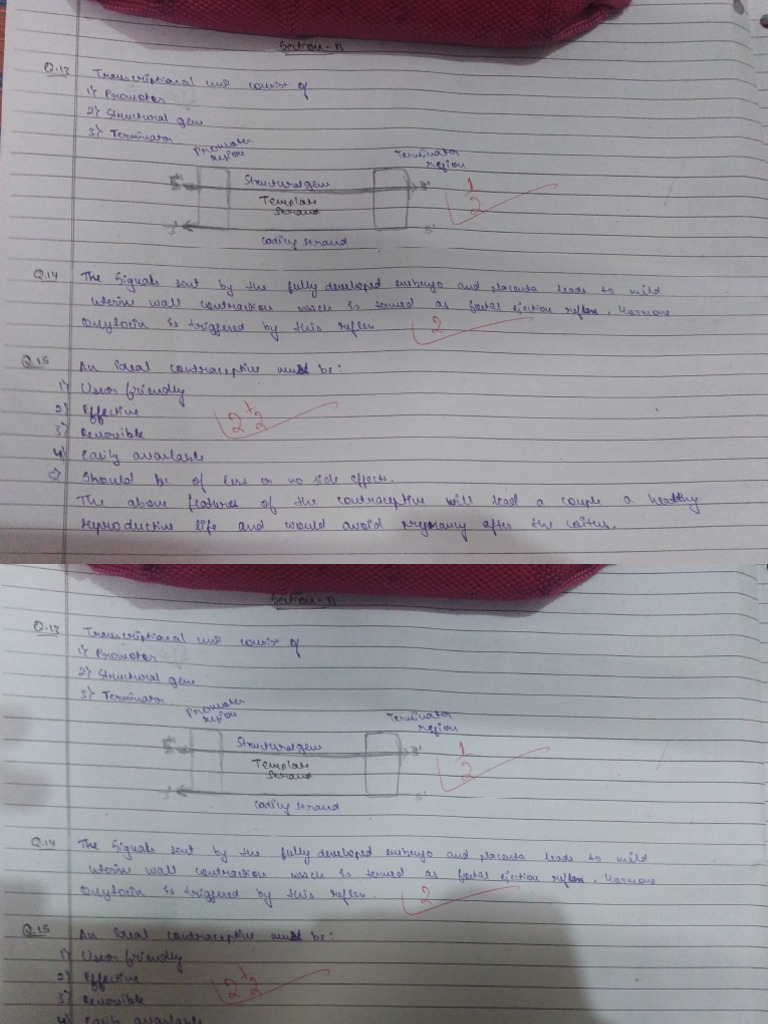 Section-B
Q.13 Transcriptional unit consist of
1) Promoter
2) Structural gene
3) Terminator
Promoter region
Terminator region
Structural gene 3'
1/2
Template strand
3' 5'
Coding strand
Q.14 The Signals sent by the fully developed embryo and placenta leads to mild
uterine wall contraction which is termed as foetal ejection reflex. Hormone
Oxytocin is triggered by this reflex
2
Q.15 An ideal contraceptive must be:
1) User friendly
2) Effective
2+2
3) Reversible
4) Easily available
5) Should be of less or no side effects.
The above features of the contraceptive will lead a couple a healthy
reproductive life and would avoid pregnancy after the coitus.
Section-B
Q.13 Transcriptional unit consist of
1) Promoter
2) Structural gene
3) Terminator
Promoter region
Terminator region
Structural gene 3'
1/2
Template strand
3' 5'
Coding strand
Q.14 The Signals sent by the fully developed embryo and placenta leads to mild
uterine wall contraction which is termed as foetal ejection reflex. Hormone
Oxytocin is triggered by this reflex.
2
Q.15 An ideal contraceptive must be:
1) User friendly
2) Effective
2+2
3) Reversible
4) Easily available